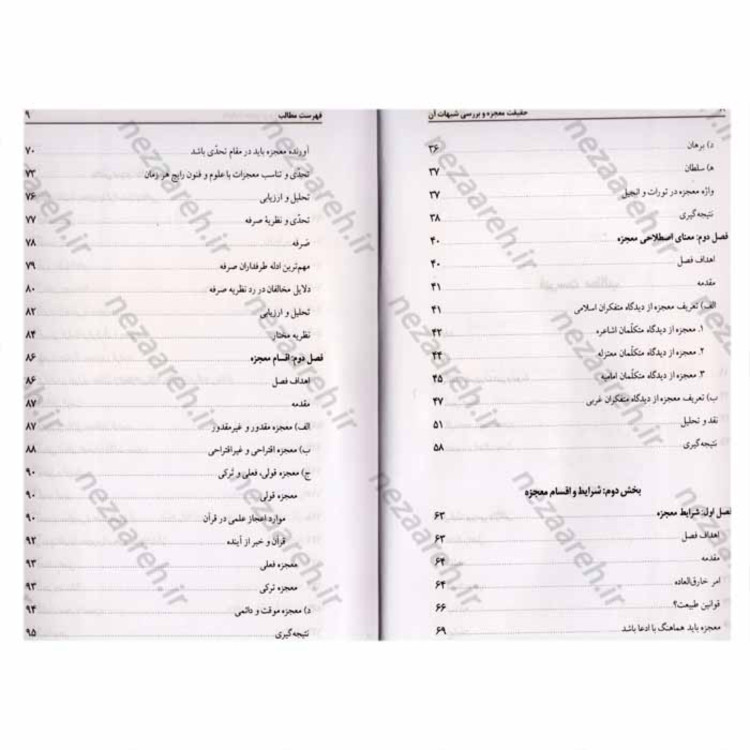 حقیقت معجزه و بررسی شبهات آن
د) برهان ۳۶
ه) سلطان ۳۷
واژه معجزه در تورات و انجیل ۳۷
نتیجه‌گیری ۳۸
فصل دوم: معنای اصطلاحی معجزه ۴۰
اهداف فصل ۴۰
مقدمه ۴۱
الف) تعریف معجزه از دیدگاه متفکران اسلامی ۴۱
۱. معجزه از دیدگاه متکلّمان اشاعره ۴۲
۲. معجزه از دیدگاه متکلّمان معتزله ۴۴
۳. معجزه از دیدگاه متکلّمان امامیه ۴۵
ب) تعریف معجزه از دیدگاه متفکران غربی ۴۷
نقد و تحلیل ۵۱
نتیجه‌گیری ۵۸
بخش دوم: شرایط و اقسام معجزه
فصل اول: شرایط معجزه ۶۳
اهداف فصل ۶۳
مقدمه ۶۴
امر خارق‌العاده ۶۴
قوانین طبیعت؟ ۶۶
معجزه باید هماهنگ با ادعا باشد ۶۹
فهرست مطالب ۹
آورنده معجزه باید در مقام تحدّی باشد ۷۰
تحدّی و تناسب معجزات با علوم و فنون رایج هر زمان ۷۳
تحلیل و ارزیابی ۷۶
تحدّی و نظریهٔ صرفه ۷۷
صَرفه ۷۸
مهم‌ترین ادله طرفداران صرفه ۷۹
دلایل مخالفان در رد نظریه صرفه ۸۰
تحلیل و ارزیابی ۸۲
نظریه مختار ۸۴
فصل دوم: اقسام معجزه ۸۶
اهداف فصل ۸۶
مقدمه ۸۷
الف) معجزه مقدور و غیرمقدور ۸۷
ب) معجزه اقتراحی و غیراقتراحی ۸۸
ج) معجزه قولی، فعلی و تَرکی ۹۰
معجزه قولی ۹۰
موارد اعجاز علمی در قرآن ۹۰
قرآن و خبر از آینده ۹۲
معجزه فعلی ۹۳
معجزه ترکی ۹۳
د) معجزه موقت و دائمی ۹۴
نتیجه‌گیری ۹۵
nezaareh.ir